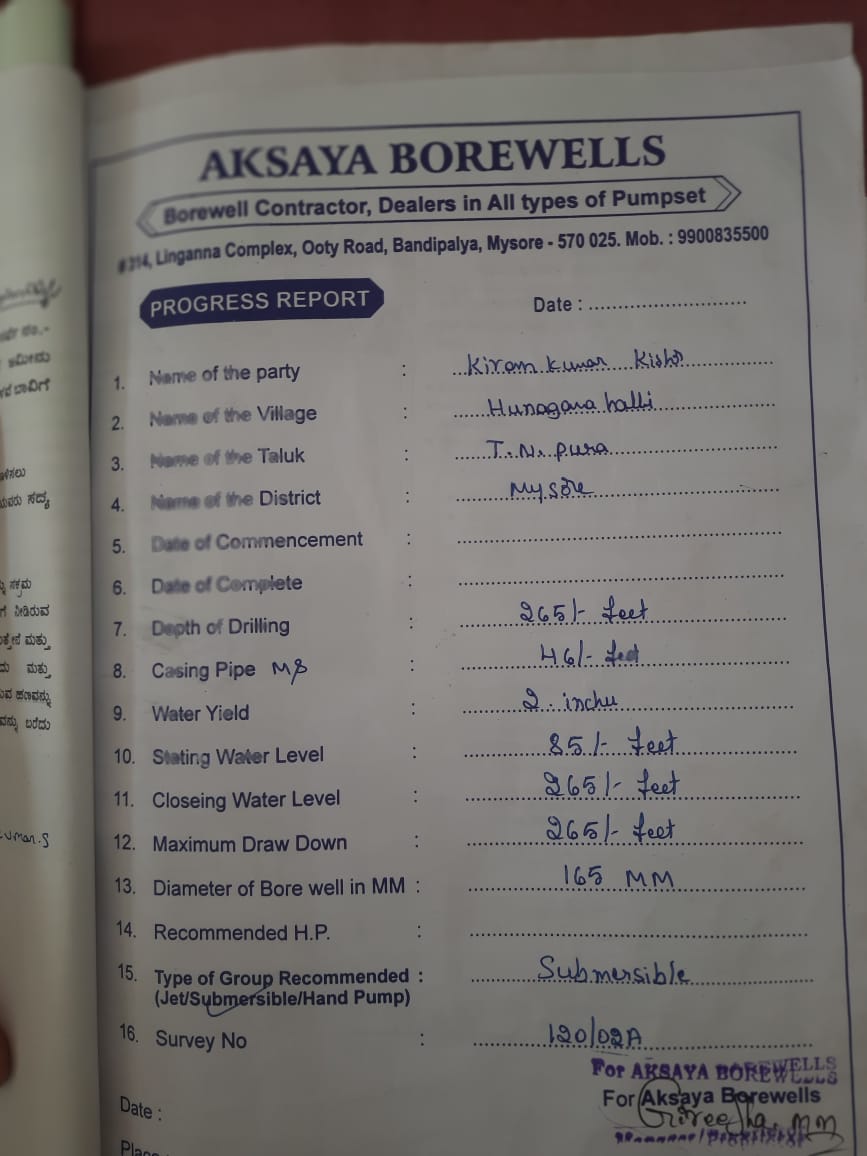 AKSAYA BOREWELLS
Borewell Contractor, Dealers in All types of Pumpset
#314, Linganna Complex, Ooty Road, Bandipalya, Mysore - 570 025. Mob. : 9900835500
PROGRESS REPORT
Date : ............................
1. Name of the party : Kiran Kumar
2. Name of the Village : Hunagana halli
3. Name of the Taluk : T.N. pura
4. Name of the District : Mysore
5. Date of Commencement :
6. Date of Complete :
7. Depth of Drilling : 265/- feet
8. Casing Pipe MS : 46/- feet
9. Water Yield : 2. inchu
10. Stating Water Level : 85/- feet
11. Closeing Water Level : 265/- feet
12. Maximum Draw Down : 265/- feet
13. Diameter of Bore well in MM : 165 MM
14. Recommended H.P. :
15. Type of Group Recommended : Submersible
(Jet/Submersible/Hand Pump)
16. Survey No : 120/02A
For AKSAYA BOREWELLS
For Aksaya Borewells
Date :
ಮತ್ತು
ಬರೆದು